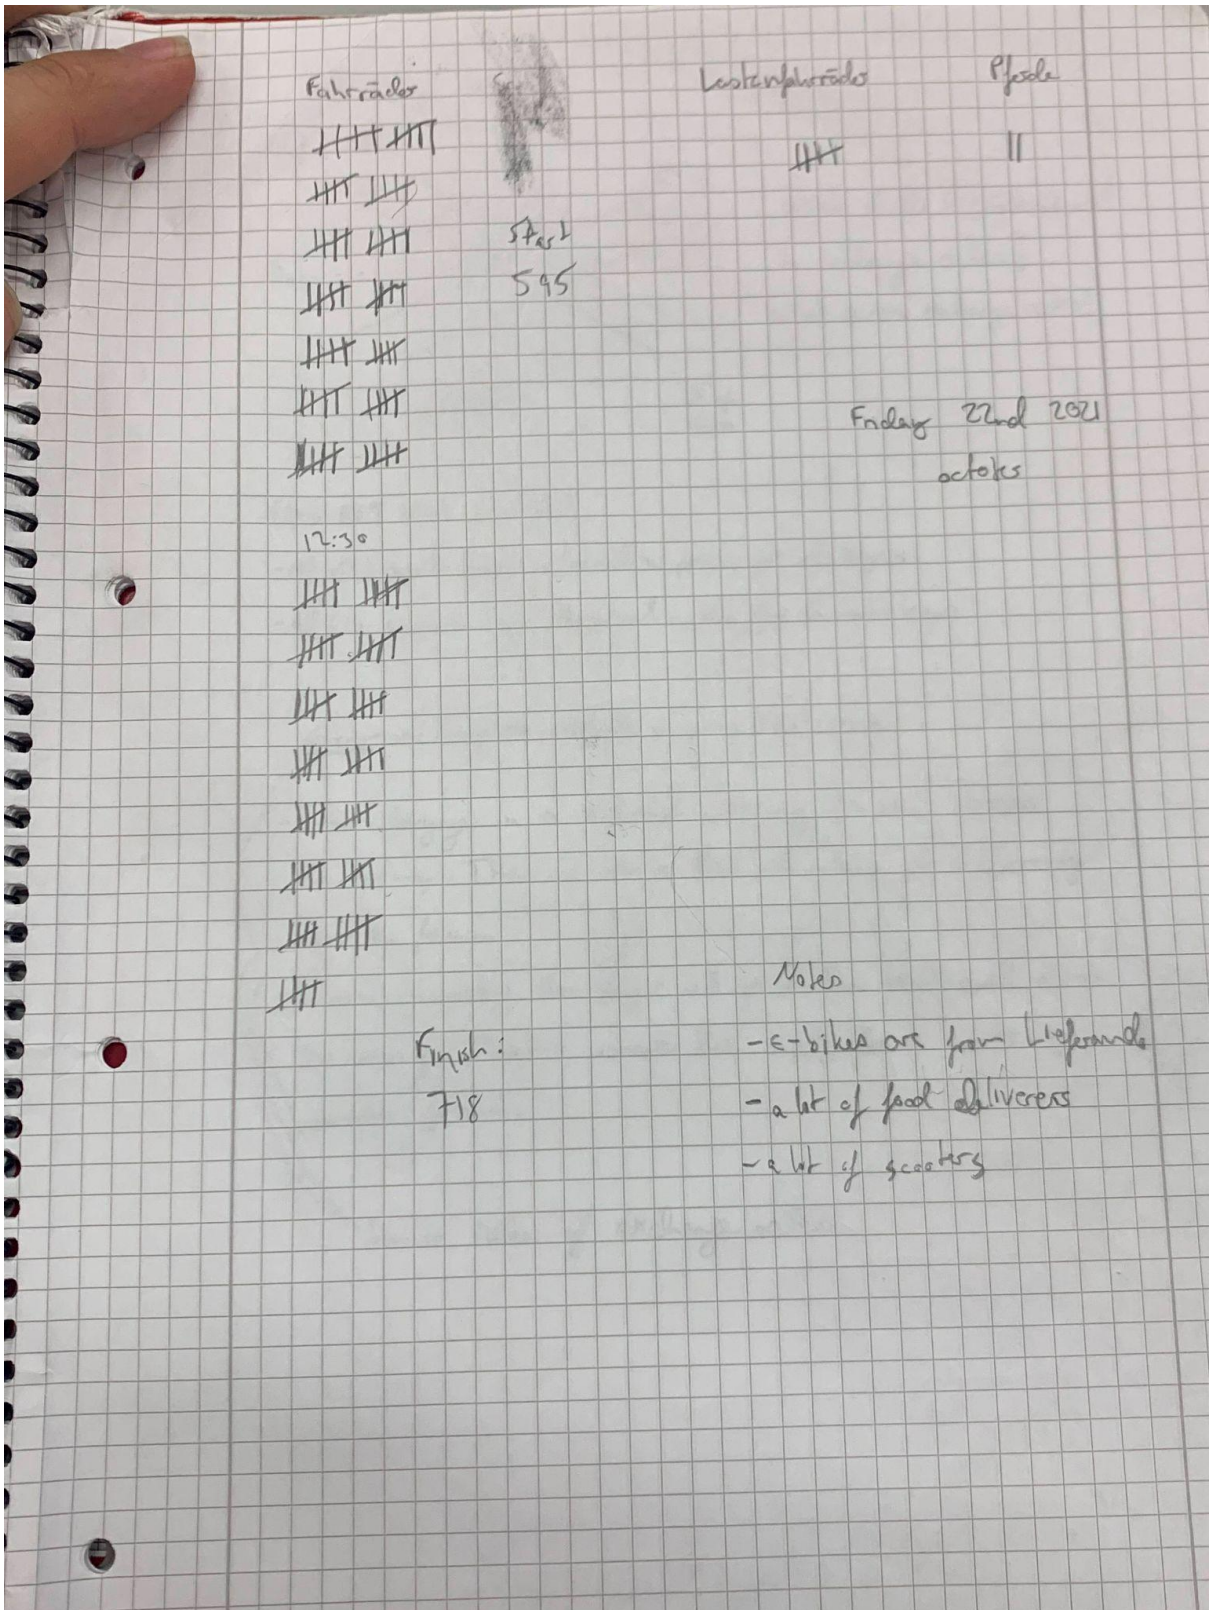 Fahrräder Lastenfahrräder Pferde
Start
595
Friday 22nd 2021
october
12:30
Notes
Finish:
718
- E-bikes are from Lieferando
- a lot of food deliverers
- a lot of scooters